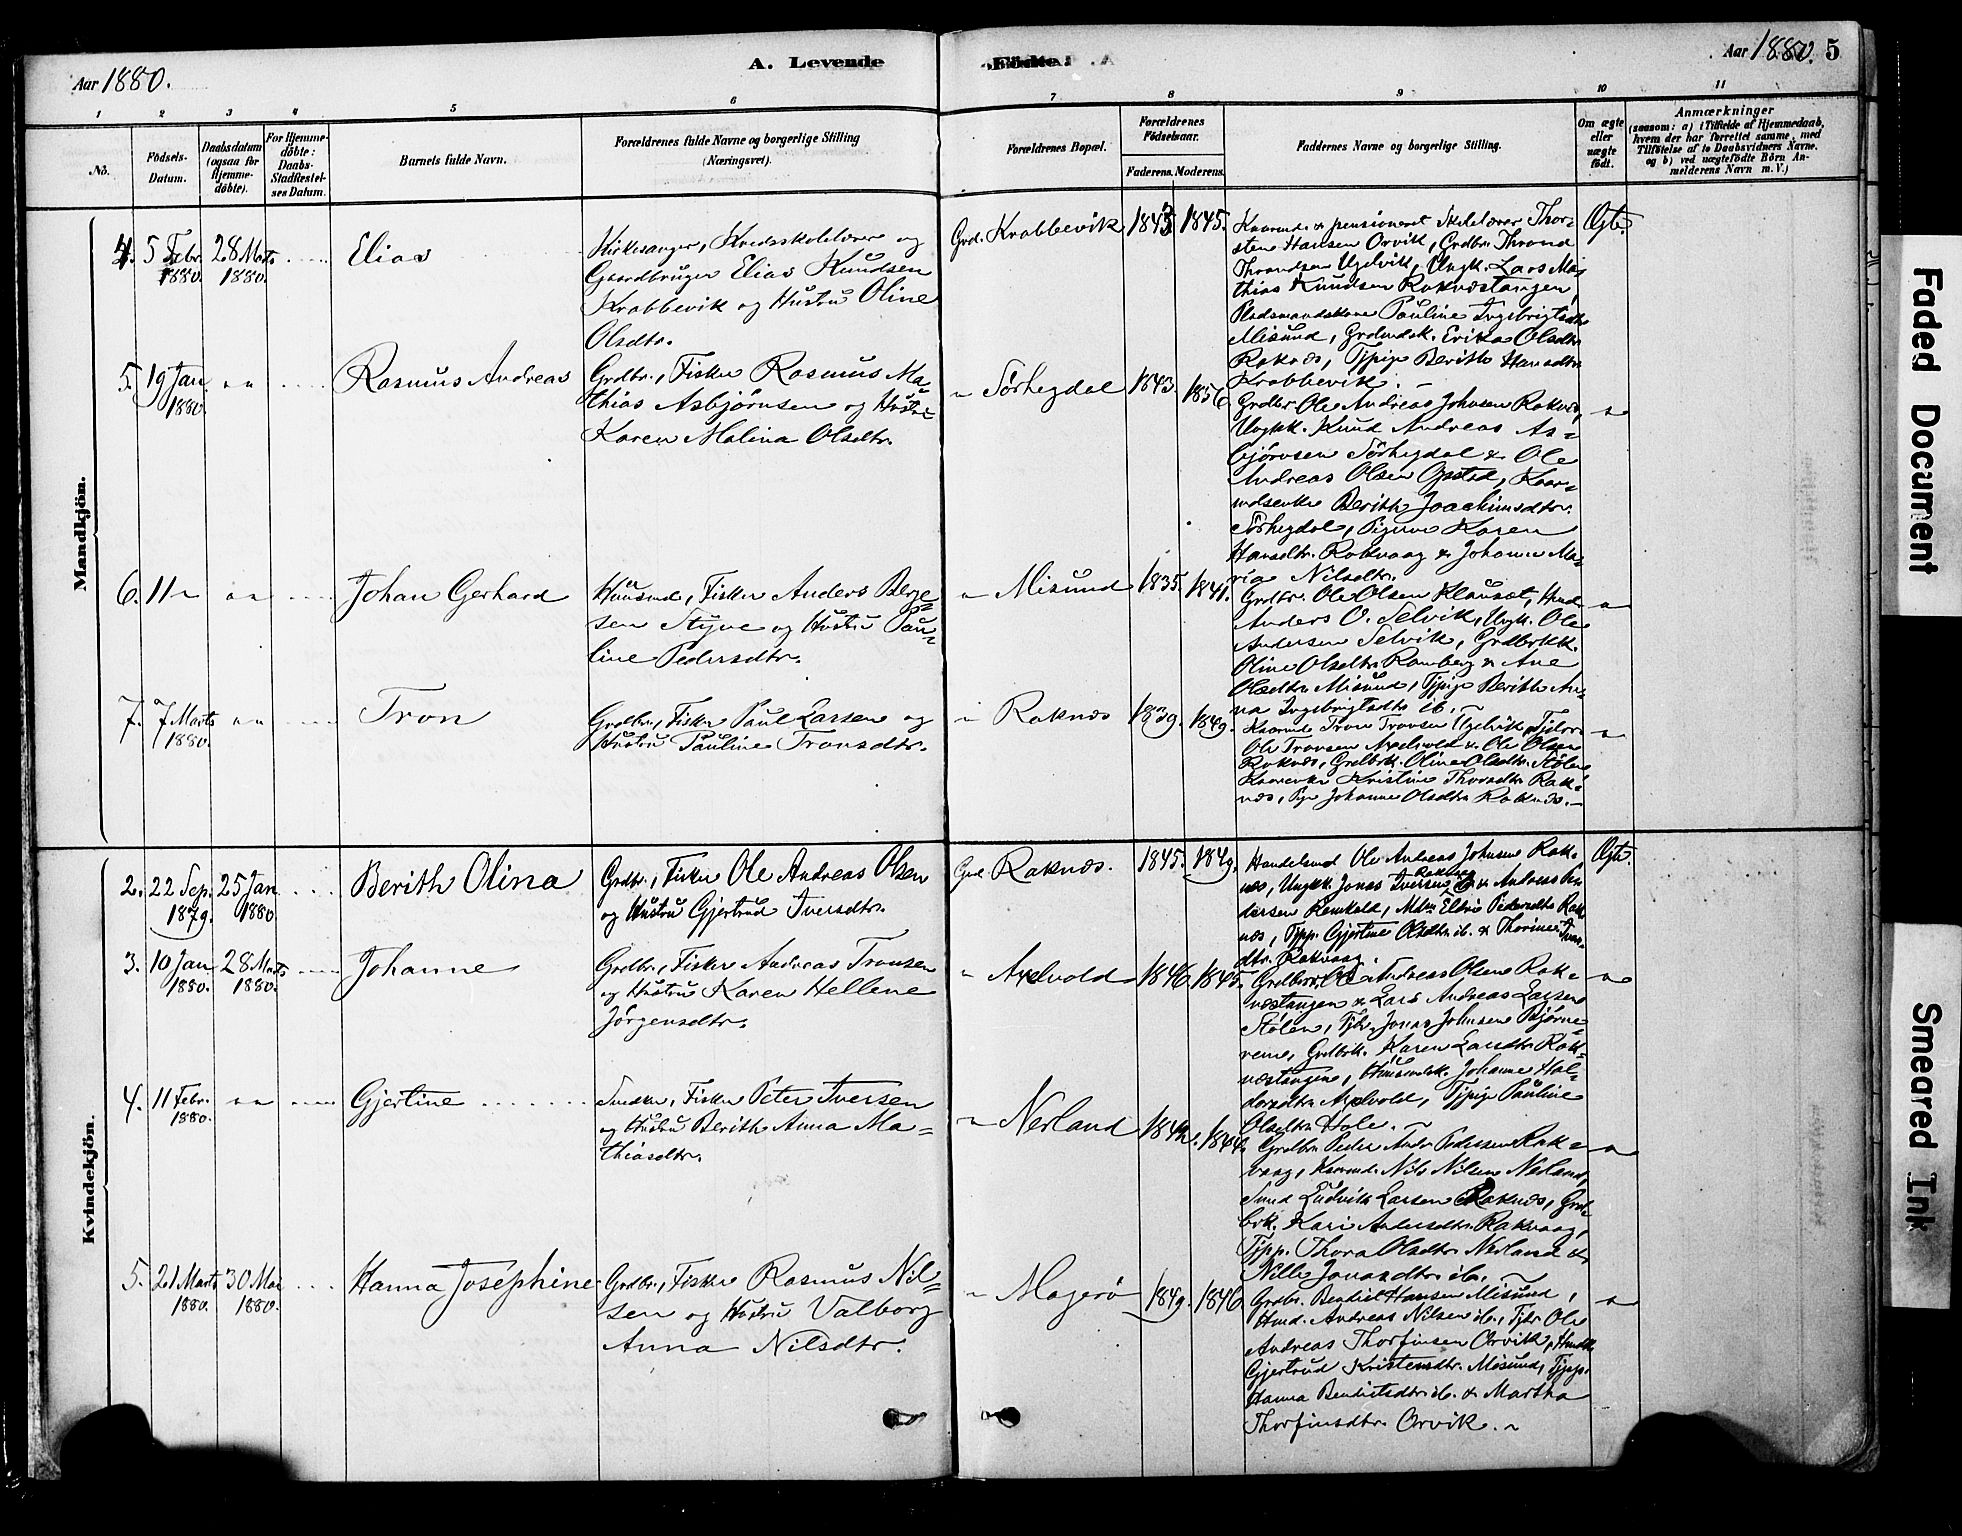 Aar 1880.
A. Levende
Födte.
Aar 1880. 5
1 2 3 4 5 6 7 8 9 10 11
No.
Födsels-
Datum.
Daabsdatum
(ogsaa for
Hjemme-
döbte).
For Hjemme-
döbte:
Daabs-
Stadfæstel-
ses Datum.
Barnets fulde Navn.
Forældrenes fulde Navne og borgerlige Stilling
(Næringsvei).
Forældrenes Bopæl.
Forældrenes
Födselsaar.
Faderens. Moderens.
Faddernes Navne og borgerlige Stilling.
Om ægte
eller
uægte
födt.
Anmærkninger
(saasom: a) i Tilfælde af Hjemmedaab,
hvem der har forrettet samme, med
Tilföielse af to Daabsvidners Navne,
og b) ved uægtefödte Börn An-
melderens Navn m. V.)
Mandkjön.
4. 5 Febr. 1880. 28 Marts 1880. Elias
Kirkesanger, Kredsskolelærer og
Gaardbruger Elias Knudsen
Krabbevik og Hustru Oline
Olsdtr.
Grd. Krabbevik 1845. Ægte.
Kaarmd. & pensioneret Skolelærer Thor-
sten Hansen Orvik, Grdbr. Thrond
Throndsen Ugelvik, Ungk. Lars Ma-
thias Knudsen Raknæstangen,
Pladsmandskone Pauline Ingebrigtsdtr.
Misund, Grdmdsk. Erika Olsdtr.
Raknæs, Tjpige Berith Hansdtr.
Krabbevik. —
5. 19 Jan. 1880. " " Rasmus Andreas
Grdbr., Fisker Rasmus Ma-
thias Asbjørnsen og Hustru
Karen Malina Olsdtr.
" Sörhegdal 1843. 1856.
Grdbr. Ole Andreas Johnsen Raknæs,
Ungk. Knud Andreas As-
bjørnsen Sörhegdal & Ole
Andreas Olsen Opstad, Kaar-
mdsenke Berith Joachimsdtr.
Sörhegdal, Pigerne Karen
Hansdtr. Rakvaag & Johanne Ma-
ria Nilsdtr.
6. 11 " " " Johan Gerhard
Huusmd., Fisker Anders Berge-
sen Styve og Hustru Pau-
line Pedersdtr.
" Misund 1835. 1841.
Grdbr. Ole Olsen Klauset, Hmd.
Anders O. Selvik, Ungk. Ole
Andersen Selvik, Grdbrkk.
Oline Olsdtr. Ramberg & Ane
Olsdtr. Misund, Tjpige Berith An-
na Ingebrigtsdtr. ib. —
7. 7 Marts 1880. " " Tron
Grdbr., Fisker Paul Larsen og
Hustru Pauline Tronsdtr.
" Raknæs 1849.
Kaarmd. Tron Tronsen Ugelvik,
Ole Tronsen & Ole Olsen
Raknæs, Grdbrk. Olina Olsdtr. Stölen
Kaarenke Kristine Thorsdtr. Rak-
næs, Pige Johanne Olsdtr. Raknæs. —
Kvindekjön.
2. 22 Sep. 1879. 25 Jan. 1880. Berith Olina
Grdbr., Fisker Ole Andreas Olsen
og Hustru Gjertrud Iversdtr.
Grd. Raknæs. 1845. 1849. Ægte.
Handelsmd. Ole Andreas Johnsen Rak-
næs, Ungkk. Jonas Iversen Rakvaag & Andreas
, Mdm. Pedersdtr. Rak-
næs, Tjpp. Gjertine Olsdtr. ib. & Thorine
dtr. Rakvaag.
3. 10 Jan. 1880. 28 Marts 1880. Johanne
Grdbr., Fisker Andreas Tronsen
og Hustru Karen Hellene
Jörgensdtr.
" 1846. 1845.
Grdbrne. Ole Andreas Olsen Rak-
næstangen & Lars Andreas Larsen
Stölen, Tjdr. Jonas Johnsen Björne-
reme, Grdbrk. Karen Larsdtr. Rak-
næstangen, Huusmdsk. Johanne Hal-
dorsdtr., Tjpige Pauline
Olsdtr. Hole. —
4. 11 Febr. 1880. " " Gjertine
Smdkr., Fisker Peter Iversen
og Hustru Berith Anna Ma-
thiasdtr.
" Nerland 1844.
Grdbr. Peder Andr. Pedersen Rak-
vaag, Kaarmd. Nils Nilsen Nerland,
Smd. Ludvik Larsen Raknæs, Grd-
brk. Kari Andersdtr. Rakvaag,
Tjpp. Thora Olsdtr. Nerland &
Nille Jonasdtr. ib. —
5. 21 Marts 1880. 30 Mai 1880. Hanna Josephine
Grdbr., Fisker Rasmus Nil-
sen og Hustru Valborg
Anna Nilsdtr.
" Magerö 1849. 1846
Grdbr. Bendict Hansen Misund,
Hmd. Andreas Nilsen ib., Tjkr. Ole
Andreas Thorfinsen Orvik, Hmdk.
Gjertrud Kristensdtr. Misund, Tjpp.
Hanna Bendictsdtr. ib. & Martha
Thorfinsdtr. Orvik. —
Faded Document
Smeared Ink